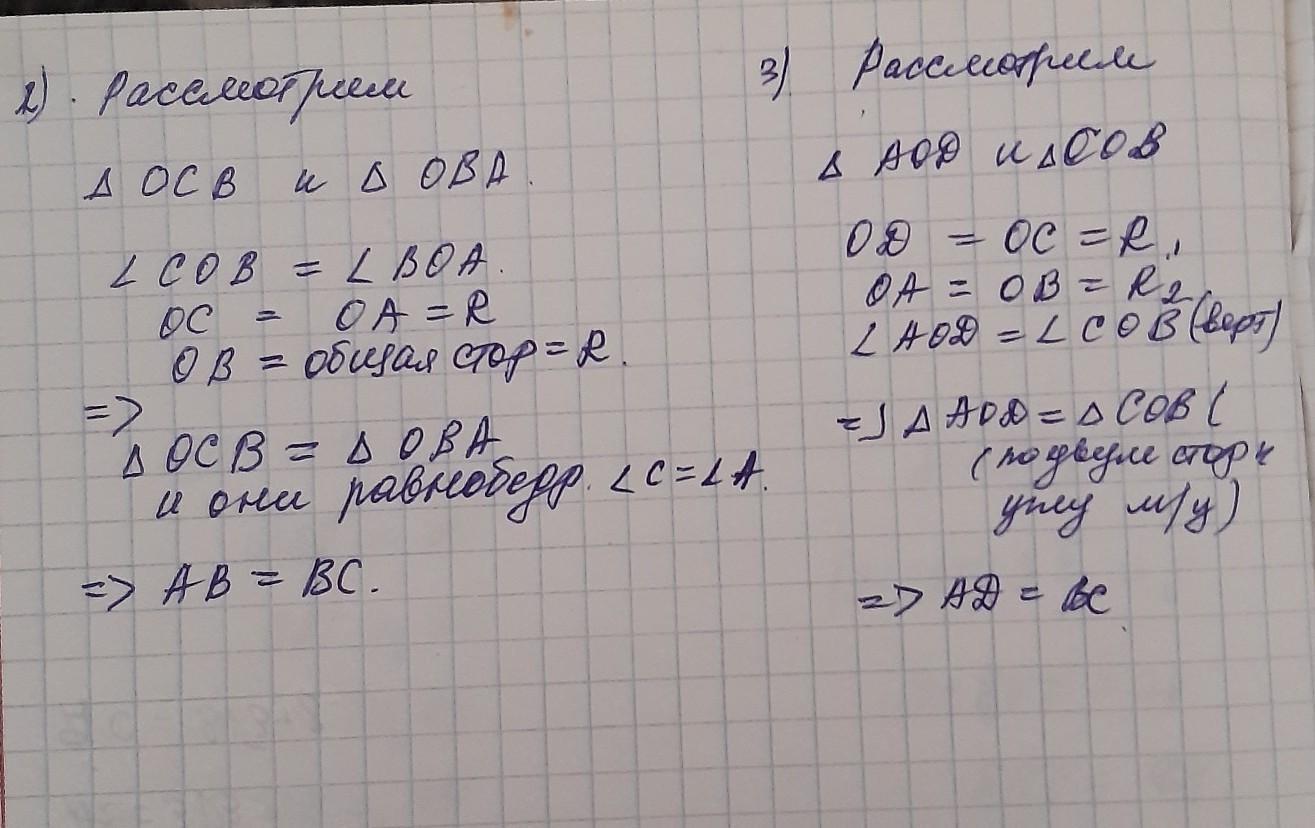 2). Рассмотрим
△ OCB и △ OBA.
∠COB = ∠BOA.
OC = OA = R
OB = общая стор = R.
=>
△ OCB = △ OBA
и они равнобедр. ∠C = ∠A.
=> AB = BC.
3) Рассмотрим
△ AOD и △COB
OD = OC = R1
OA = OB = R2
∠AOD = ∠COB (верт)
=> △ AOD = △ COB (
(по двум стор и
углу м/у)
=> AD = BC